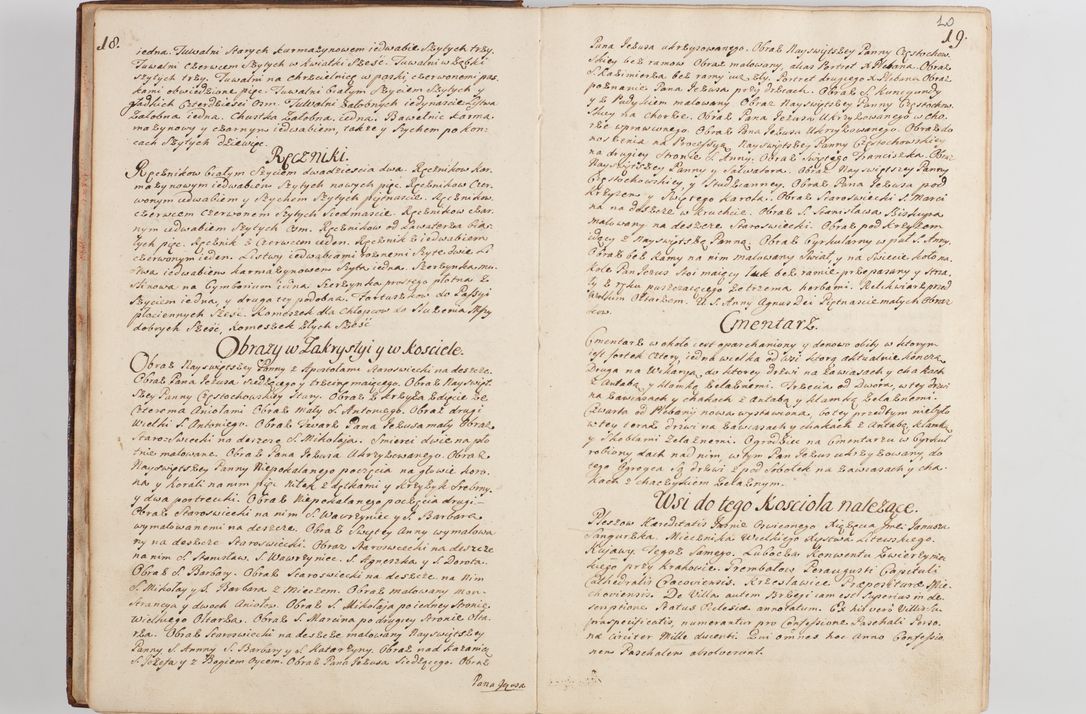 18.
iedna. Tuwalni starych karmazynowem iedwabie szytych trzy.
Tuwalni czerwcem szytych w kwiatki szesc. Tuwalni w ząbki
szytych trzy. Tuwalni na chrzcielnicę w paski czerwonemi pas,
kami obwiedzione pięc. Tuwalni białym szyciem szytych y
gładkich czterdziesci osm. Tuwalni żałobnych iedynascie
żałobna iedna. Chustka żałobna, iedna. Bawełnic karma
mazynowy y czarnym iedwabiem, także y sychem po kon,
cach szytych dziewięc.
Ręczniki.
Ręcznikow białym szyciem dwadziescia dwa. Ręcznikow kar,
mazynowym iedwabiem szytych nowych pięc. Ręcznikow czer,
wonym iedwabiem y sychem szytych pętnascie. Ręcznikow
czerwcem czerwonem szytych siedmnascie. Ręcznikow czar,
nym iedwabiem szytych osm. Ręcznikow od Lawaterza bia,
łych pięc. Ręcznik z czerwcem ieden. Ręcznik z iedwabiem
czerwonym ieden. Listwy iedwabiami roznemi szyte dwie. Li
stwa iedwabiem karmazynowem szyta iedna.
na Cymborium iedna prostego płotna z
szyciem iedna, y druga tey podobna. Fartuszkow do Passyi
płociennych szesc. Komeszek dla Chłopcow do służenia Mszy
dobrych szesc, Komeszek złych szesc
Obrazy w Zakrystyi y w Kosciele.
Obraz Nayswiętszey Panny z Apostołami staroswiecki na deszce.
Obraz Pana Jezusa siedzącego y trzcinę maiącego. Obraz Nayswięt,
szey Panny Częstochowskiey stary. Obraz z krzyża zdięcie ze
czterema Aniołami Obraz mały S. Antoniego. Obraz drugi
wielki S. Antoniego. Obraz Twarz Pana Jezusa mały Obraz
staroswiecki na deszce S. Mikołaja. Smierci dwie na pło
tnie malowane. Obraz Pana Jezusa Ukrzyżowanego. Obraz
Nayswiętszey Panny Niepokalanego poczęcia na głowie koro,
na y korali na nim pięc nitek z dętkami y krzyżyk srebrny,
y dwa portreciki. Obraz Niepokalanego poczęcia drugi
Obraz staroswiecki na nim S. Wawrzyniec y S. Barbara
wymalowanemi na deszce. Obraz Swiętey Anny wymalowa
ny na deszce staroswiecki. Obraz staroswiecki na deszce
na nim S. Stanisław. S. Wawrzyniec. S. Agnieszka y S. Dorota.
Obraz S. Barbary. Obraz staroswiecki na deszce, na nim
S. Mikołay y S. Barbara z mieczem. Obraz malowany Mon,
strancya y dwoch Aniołow. Obraz S. Mikołaja po iedney stronie
wielkiego Ołtarza. Obraz S. Marcina po drugiey stronie Ołta
rza. Obraz staroswiecki na deszcze malowany Nayswiętszey
Panny S. Anny S. Barbary y S. Katarzyny. Obraz nad kazanicą
S. Jozefa y z Bogiem Oycem. Obraz Pana Jezusa siedzącego. Obraz
Pana Jezusa
20
19.
Pana Jezusa ukrzyżowanego. Obraz Nayswiętszey Panny Częstochow
skiey bez ramow Obraz malowany, alias Portret X. Plebana. Obraz
S. Kazimierza bez ramy Portret drugiego X. Plebana Obraz
poznanie Pana Jezusa przy drzwiach. Obraz S. Kunegundy
y z Pudyliem malowany Obraz Nayswiętszey Panny Częstochow,
skiey na Chorze. Obraz Pana Jezusa Ukrzyżowanego w cho,
rze wprawionego. Obraz Pana Jezusa Ukrzyżowanego. Obraz do
noszenia na Processyą Nayswiętszey Panny Częstochowskiey
na drugiey stronie S. Anny. Obraz Swiętego Franciszka, Obraz
Nayswiętszey Panny y Salwatora. Obraz Nayswiętszey Panny
Częstochowskiey y Studzianney. Obraz Pana Jezusa pod
krzyżem y Swiętego Karola. Obraz staroswiecki S. Marci
na na deszcze w kruchcie. Obraz S. Stanisława Biskupa
malowany na deszcze staroswiecki. Obraz pod krzyżem
idący z Nayswiętszą Panną. Obraz Cyrkularny w puł S. Anny.
Obraz bez ramy na nim malowany swiat, y na swiecie koło na
kole Pan Jezus stoi maiący łuk bez ramie przepasany y strza
ły z ręku puszczaiącego z trzema herbami. Relikwiarz przed
Wielkim Ołtarzem. U S. Anny Agnus Dei Piętnascie małych Obraz
kow.
Cmentarz.
Cmentarz w około iest oparchaniony y donowo obity w ktorym
iest fortek cztery, iedna wielka od wsi ktorą aktualnie konczą
Druga na Wikaryą do ktorey drzwi na zawiasach y chakach
z Antabą y klamką żelaznemi. Trzecia od Dwora, w tey drzwi
na zawiasach y chakach z Antabą y klamką żelaznemi.
Czwarta od Plebanij nowa wystawiona, bo tey przedtym niebyło
w tey teraz drzwi na zawiasach y chakach z Antabą, klamką
y skoblami żelaznemi. Ogrodzic na Cmentarzu w Cyrkuł
robiony dach nad nim, w tym Pan Jezus ukrzyżowany, do
tego Ogroyca są drzwi z pod szkołek na zawiasach y cha,
kach z chaczykiem żelaznym.
Wsi do tego Kosciola należące.
Pleszow Hæreditatis Jasnie Oswieconego Xiążęcia Jmci Janusza
Sanguszka. Miecznika Wielkiego Xięstwa Litewskiego.
Kujawy. Tegoż samego. Lubocza Konwentu Zwierzynie,
ckiego przy Krakowie. Prembałow Peraugusti Capituli
Cathedralis Cracoviensis. Krzesławice Præpositure Mie
choviensis. De Villa autem Brzegi iam est superius in de
scriptione status Eclesiæ annotatum. Ex his vero Villis su
praspecificatis, numerantur pro Confessione Paschali Perso,
na circiter Mille ducenti. Qui omnes hoc Anno Confessio
nem Paschalem absolverunt.